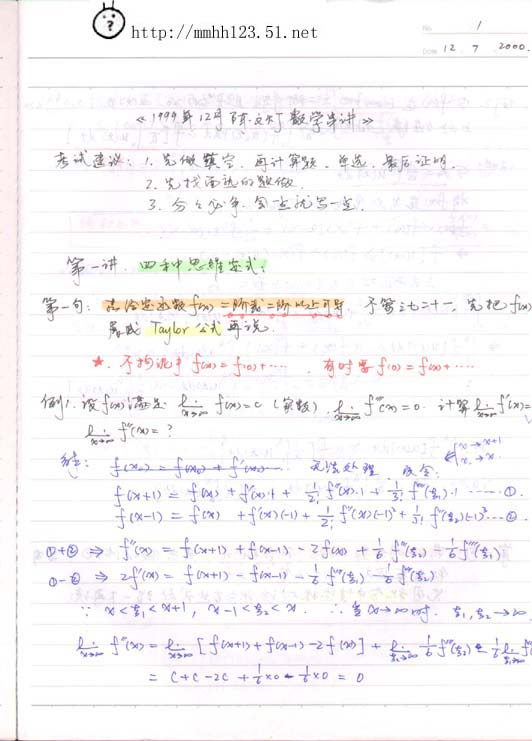 http://mmhh123.51.net
No 1
Date 12. 7. 2000.
《1999年12月陈文灯数学串讲》
考试建议: 1. 先做填空, 再计算题, 单选, 最后证明.
2. 先找而熟的题做.
3. 分分必争, 会一点就写一点.
第一讲. 四种思维定式:
第一句: 若给定函数f(x)二阶或二阶以上可导, 不管三七二十一, 先把f(x)
展成 Taylor 公式再说.
★. 不拘泥于 f(x)=f(0)+····· , 有时要 f(0)=f(x)+·····
例1. 设f(x)满足 lim x→∞ f(x)=c (实数), lim x→∞ f'''(x)=0. 计算 lim x→∞ f'(x)=
lim x→∞ f''(x)=?
f(x₀)=f(x₀)+f'(x₀)····· 无法处理, 改令: {x→x+1 x₀→x
f(x+1) = f(x) + f'(x)·1 + 1/2! f''(x)·1 + 1/3! f'''(ξ₁)·1 ····· ①.
f(x-1) = f(x) + f'(x)(-1) + 1/2! f''(x)(-1)² + 1/3! f'''(ξ₂)(-1)³ ···②.
①+② ⇒ f''(x) = f(x+1)+f(x-1) - 2f(x) + 1/6 f'''(ξ₂) - 1/6 f'''(ξ₁)
①-② ⇒ 2f'(x) = f(x+1) - f(x-1) - 1/6 f'''(ξ₁) - 1/6 f'''(ξ₂)
∵ x<ξ₁<x+1, x-1<ξ₂<x. ∴ 当x→∞时. ξ₁,ξ₂→∞
lim x→∞ f''(x) = lim x→∞ [f(x+1)+f(x-1)-2f(x)] + lim ξ₂→∞ 1/6 f'''(ξ₂) - 1/6 lim ξ₁→∞ f'''
= C+C-2C + 1/6×0 - 1/6×0 = 0